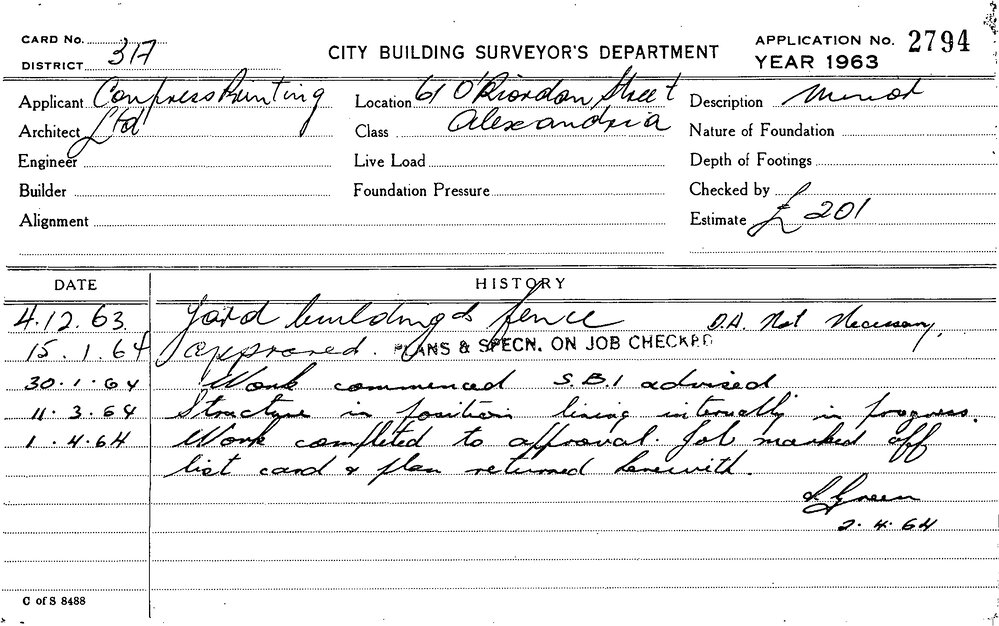 CARD No.
DISTRICT 317
CITY BUILDING SURVEYOR'S DEPARTMENT
APPLICATION No. 2794
YEAR 1963
Applicant Conpress Printing
Location 61 O'Riordan Street
Description Minor
Architect Ltd
Class Alexandria
Nature of Foundation
Engineer
Live Load
Depth of Footings
Builder
Foundation Pressure
Checked by
Alignment
Estimate £ 201
DATE HISTORY
4.12.63 Yard building & fence D.A. Not Necessary.
15.1.64 approved. PLANS & SPECN. ON JOB CHECKED
30.1.64 Work commenced S.B.I advised
11.3.64 Structure in position lining internally in progress.
1.4.64 Work completed to approval. Job marked off
list card & plan returned herewith.
Green
2.4.64
C of S 8488